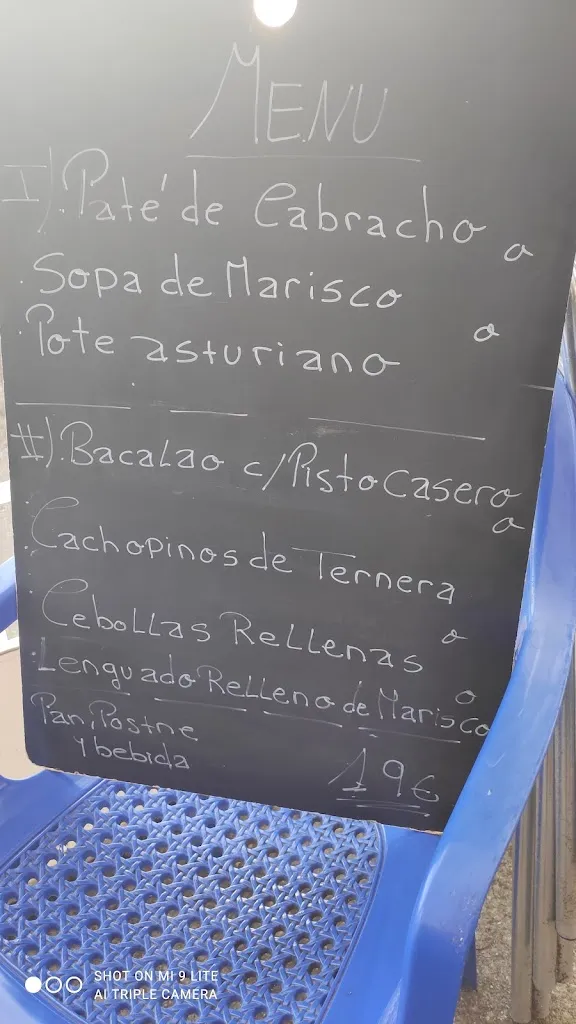 MENU
I).Paté de Cabracho o
.Sopa de Marisco o
.Pote asturiano
II).Bacalao c/Pisto casero o
.Cachopinos de Ternera
.Cebollas Rellenas o
.Lenguado Relleno de Marisco o
Pan, Postre
y bebida 19€
SHOT ON MI 9 LITE
AI TRIPLE CAMERA